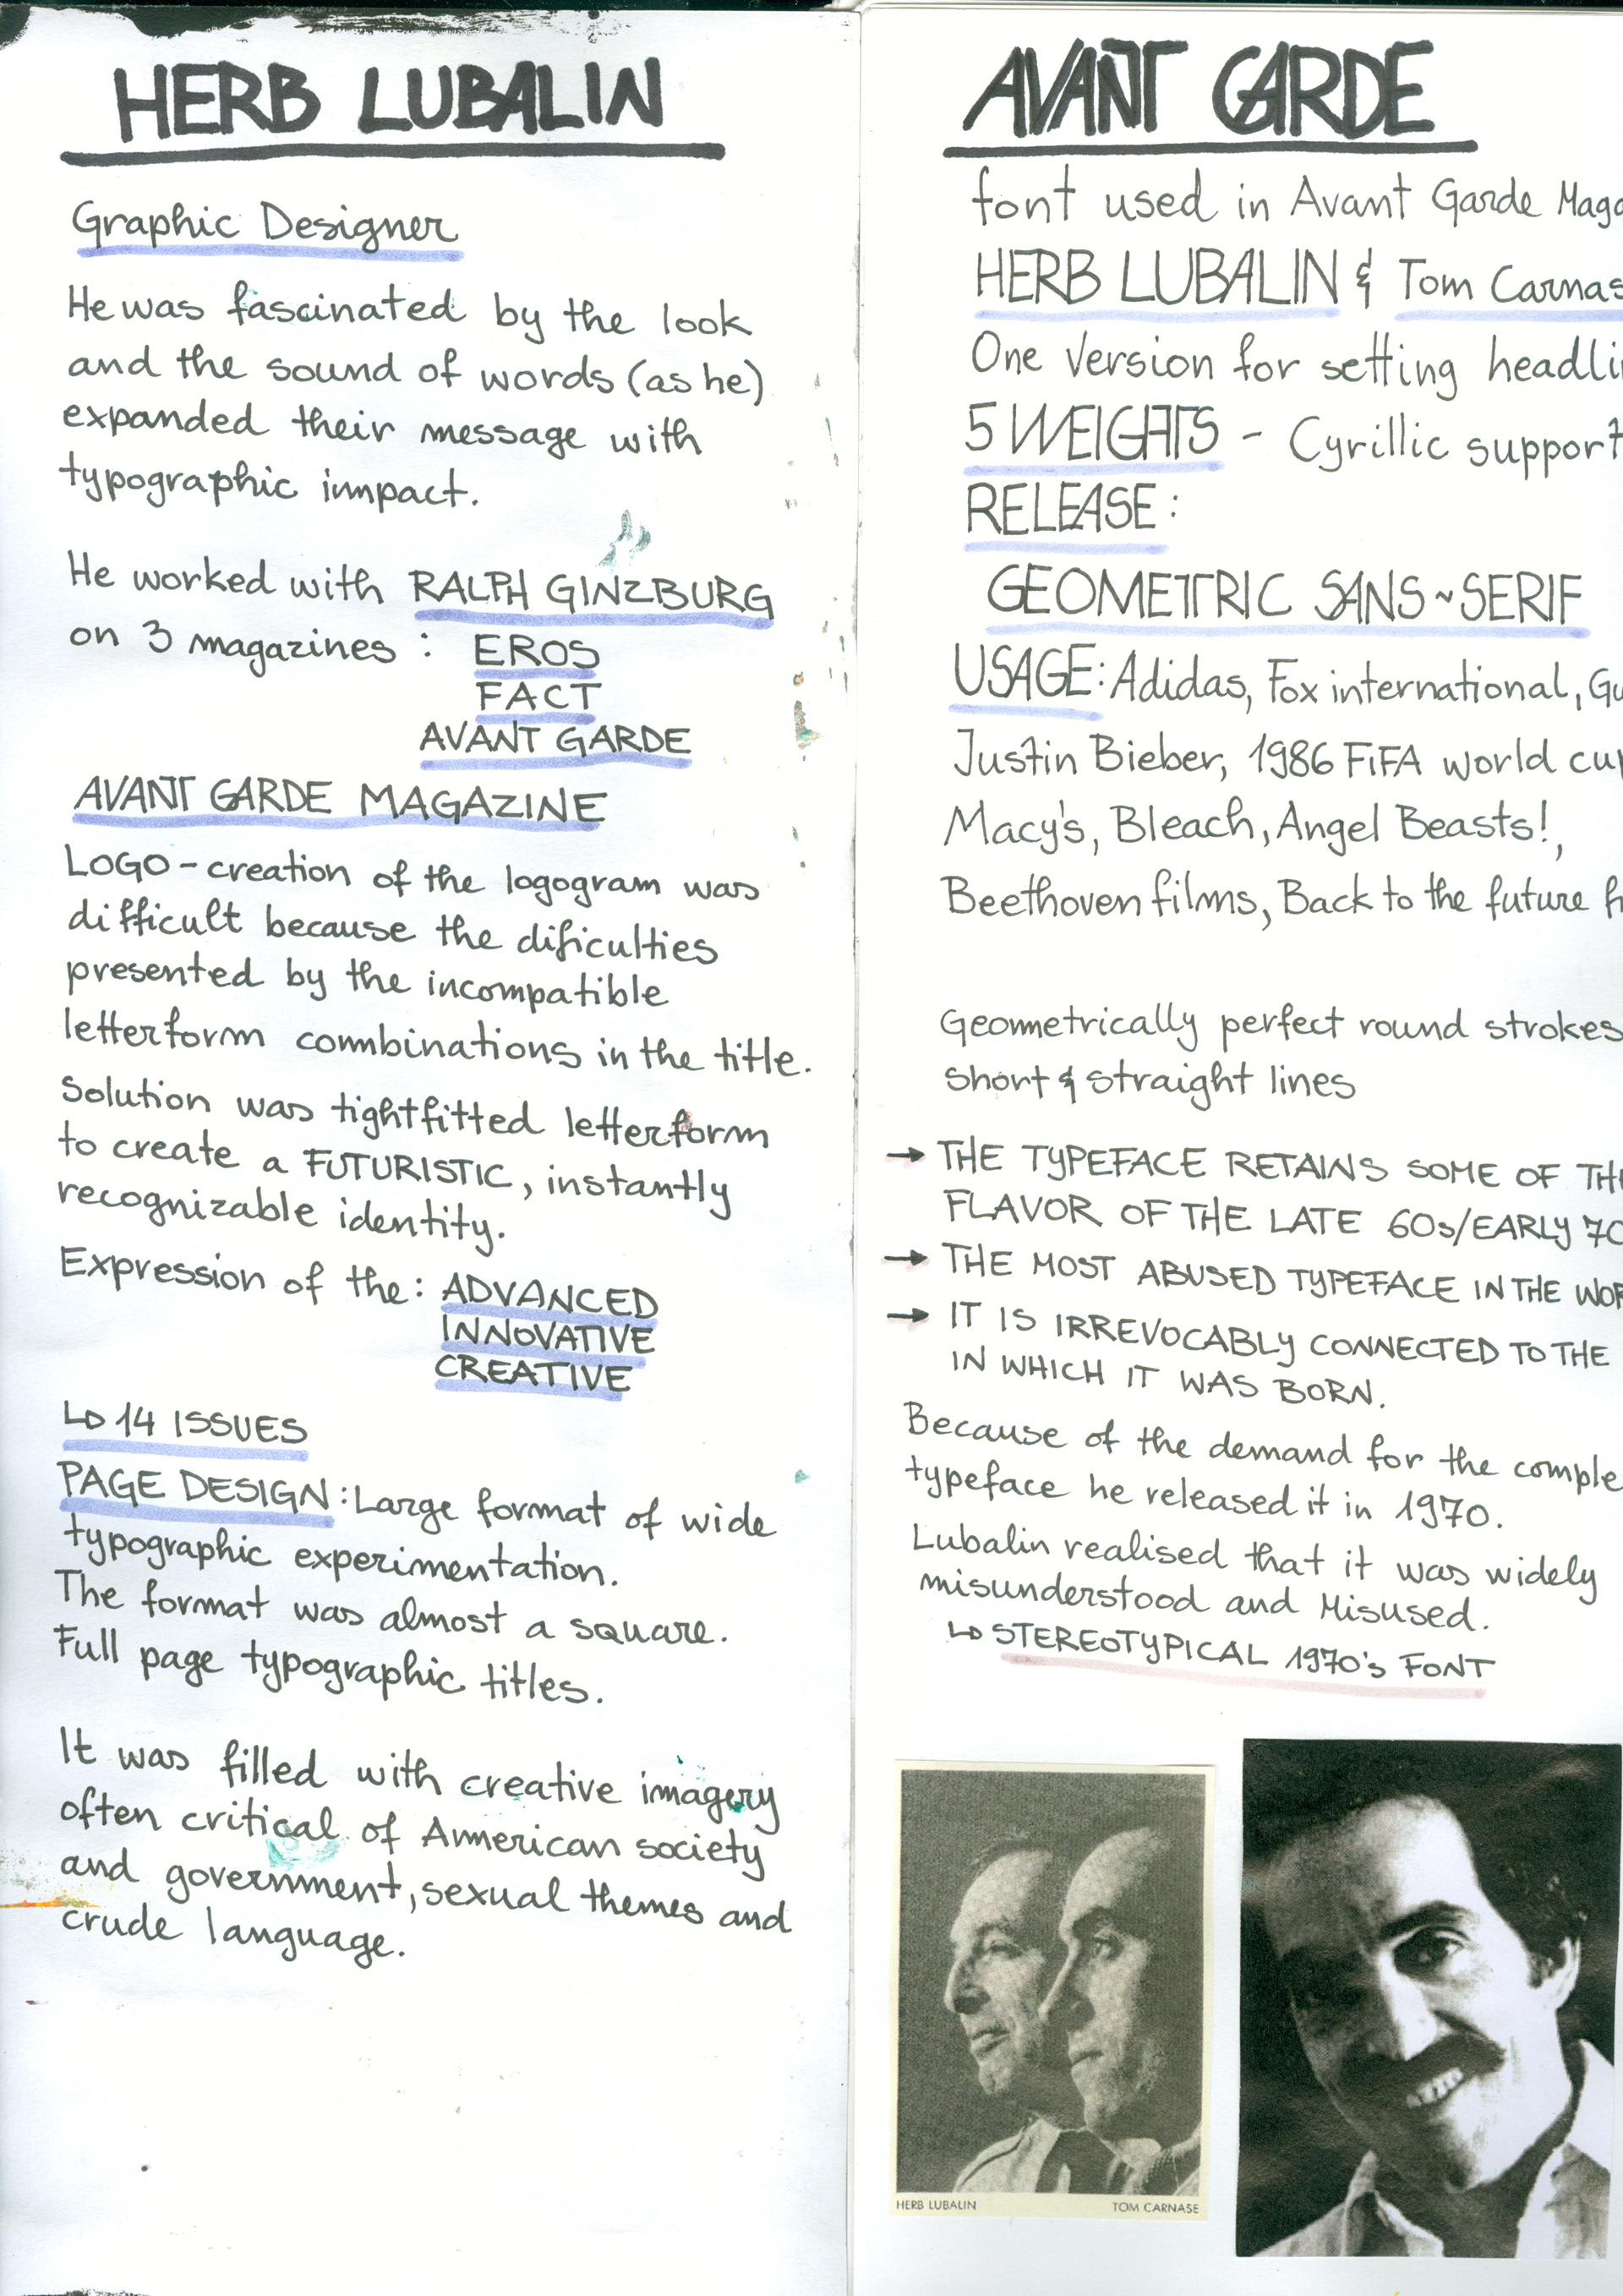 HERB LUBALIN
Graphic Designer
He was fascinated by the look
and the sound of words (as he)
expanded their message with
typographic impact.
He worked with RALPH GINZBURG
on 3 magazines : EROS
FACT
AVANT GARDE
AVANT GARDE MAGAZINE
LOGO - creation of the logogram was
difficult because the dificulties
presented by the incompatible
letterform combinations in the title.
Solution was tightfitted letterform
to create a FUTURISTIC, instantly
recognizable identity.
Expression of the: ADVANCED
INNOVATIVE
CREATIVE
↳ 14 ISSUES
PAGE DESIGN: Large format of wide
typographic experimentation.
The format was almost a square.
Full page typographic titles.
It was filled with creative imagery
often critical of American society
and government, sexual themes and
crude language.
AVANT GARDE
font used in Avant Garde Mag
HERB LUBALIN & Tom Carnas
One Version for setting headli
5 WEIGHTS - Cyrillic support
RELEASE:
GEOMETRIC SANS~SERIF
USAGE: Adidas, Fox international, Gu
Justin Bieber, 1986 FiFA world cu
Macy's, Bleach, Angel Beasts!,
Beethoven films, Back to the future
Geometrically perfect round strokes
short & straight lines
→ THE TYPEFACE RETAINS SOME OF TH
FLAVOR OF THE LATE 60s/EARLY 70
→ THE MOST ABUSED TYPEFACE IN THE WOR
→ IT IS IRREVOCABLY CONNECTED TO THE
IN WHICH IT WAS BORN.
Because of the demand for the comple
typeface he released it in 1970.
Lubalin realised that it was widely
misunderstood and Misused.
↳ STEREOTYPICAL 1970's FONT
HERB LUBALIN TOM CARNASE